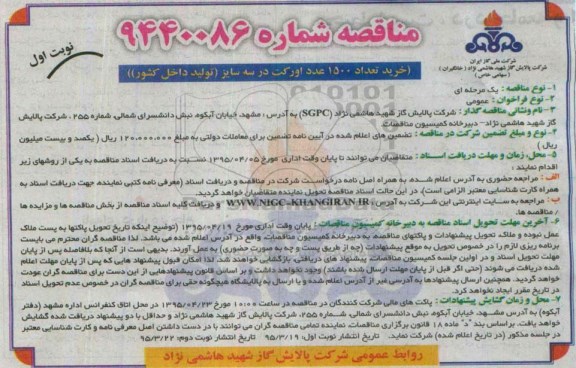 مناقصه شماره ۹۴۴۰۰۸۶
نوبت اول
شرکت ملی گاز ایران
شرکت پالایش گاز شهید هاشمی نژاد (خانگیران)
(سهامی خاص)
(خرید تعداد ۱۵۰۰ عدد اورکت در سه سایز (تولید داخل کشور))
۱- نوع مناقصه : یک مرحله ای
۲- نوع فراخوان : عمومی
۳- نام ونشانی مناقصه گذار : شرکت پالایش گاز شهید هاشمی نژاد (SGPC) به آدرس : مشهد، خیابان آبکوه، نبش دانشسرای شمالی، شماره ۲۵۵ ، شرکت پالایش
گاز شهید هاشمی نژاد- دبیرخانه کمیسیون مناقصات
۴- نوع و مبلغ تضمین شرکت در مناقصه : تضمین های اعلام شده در آیین نامه تضمین برای معاملات دولتی به مبلغ ۱۲۰,۰۰۰,۰۰۰ ریال ( یکصد و بیست میلیون
ریال )
۵- محل، زمان و مهلت دریافت اسناد : متقاضیان می توانند تا پایان وقت اداری مورخ ۱۳۹۵/۰۴/۰۵ نسبت به دریافت اسناد مناقصه به یکی از روشهای زیر
اقدام نمایند :
الف : مراجعه حضوری به آدرس اعلام شده، به همراه اصل نامه درخواست شرکت در مناقصه و دریافت اسناد (معرفی نامه کتبی نماینده جهت دریافت اسناد به
همراه کارت شناسایی معتبر الزامی است)، در این حالت اسناد مناقصه تحویل نماینده متقاضیان خواهد گردید.
ب : مراجعه به سایت اینترنتی این شرکت به آدرس WWW.NIGC-KHANGIRAN.IR و دریافت کلیه اسناد مناقصه از بخش مناقصه ها و مزایده ها
/ مناقصه ها.
۶- آخرین مهلت تحویل اسناد مناقصه به دبیرخانه کمیسیون مناقصات : پایان وقت اداری مورخ ۱۳۹۵/۰۴/۱۹ (توضیح اینکه تاریخ تحویل پاکتها به پست ملاک
عمل نبوده و ملاک تحویل پیشنهادات و پاکتهای مناقصه، به دبیرخانه کمیسیون مناقصات، واقع در آدرس اعلام شده می باشد. لذا مناقصه گران محترم می بایست
برنامه ریزی لازم را در خصوص تحویل به موقع پیشنهادات (چه از طریق پست و چه به صورت حضوری) به عمل آورند. بدیهی است از آنجا که بلافاصله پس از پایان
مهلت تحویل اسناد و در اولین جلسه کمیسیون مناقصات، پیشنهاد های دریافتی، بازگشایی خواهند شد، لذا امکان قبول پیشنهاد هایی که پس از پایان مهلت اعلام
شده دریافت می شوند (حتی اگر قبل از پایان مهلت ارسال شده باشند) وجود نخواهد داشت و بر اساس قانون پیشنهادهایی از این دست برای مناقصه گران عودت
خواهد گردید. همچنین ارسال پیشنهادها به آدرسی غیر از آدرس اعلام شده و یا ارسال به پالایشگاه هیچگونه حقی برای مناقصه گران در خصوص عدم تحویل اسناد
در تاریخ مقرر ایجاد نخواهد کرد.
۷- محل و زمان گشایش پیشنهادات : پاکت های مالی شرکت کنندگان در مناقصه در ساعت ۱۰:۰۰ مورخ ۱۳۹۵/۰۴/۲۳ در محل اتاق کنفرانس اداره مشهد (دفتر
آبکوه) به آدرس مشهد، خیابان آبکوه، نبش دانشسرای شمالی، شماره ۲۵۵، شرکت پالایش گاز شهید هاشمی نژاد و حداقل با دو پیشنهاد دریافت شده گشایش
خواهد یافت. براساس بند "د" ماده ۱۸ قانون برگزاری مناقصات، نماینده تمامی مناقصه گران می توانند با در دست داشتن اصل معرفی نامه و کارت شناسایی معتبر
در جلسه مذکور (در تاریخ اعلام شده) شرکت نماید. تاریخ انتشار نوبت اول: ۹۵/۳/۱۹ تاریخ انتشار نوبت دوم: ۹۵/۳/۲۲
روابط عمومی شرکت پالایش گاز شهید هاشمی نژاد